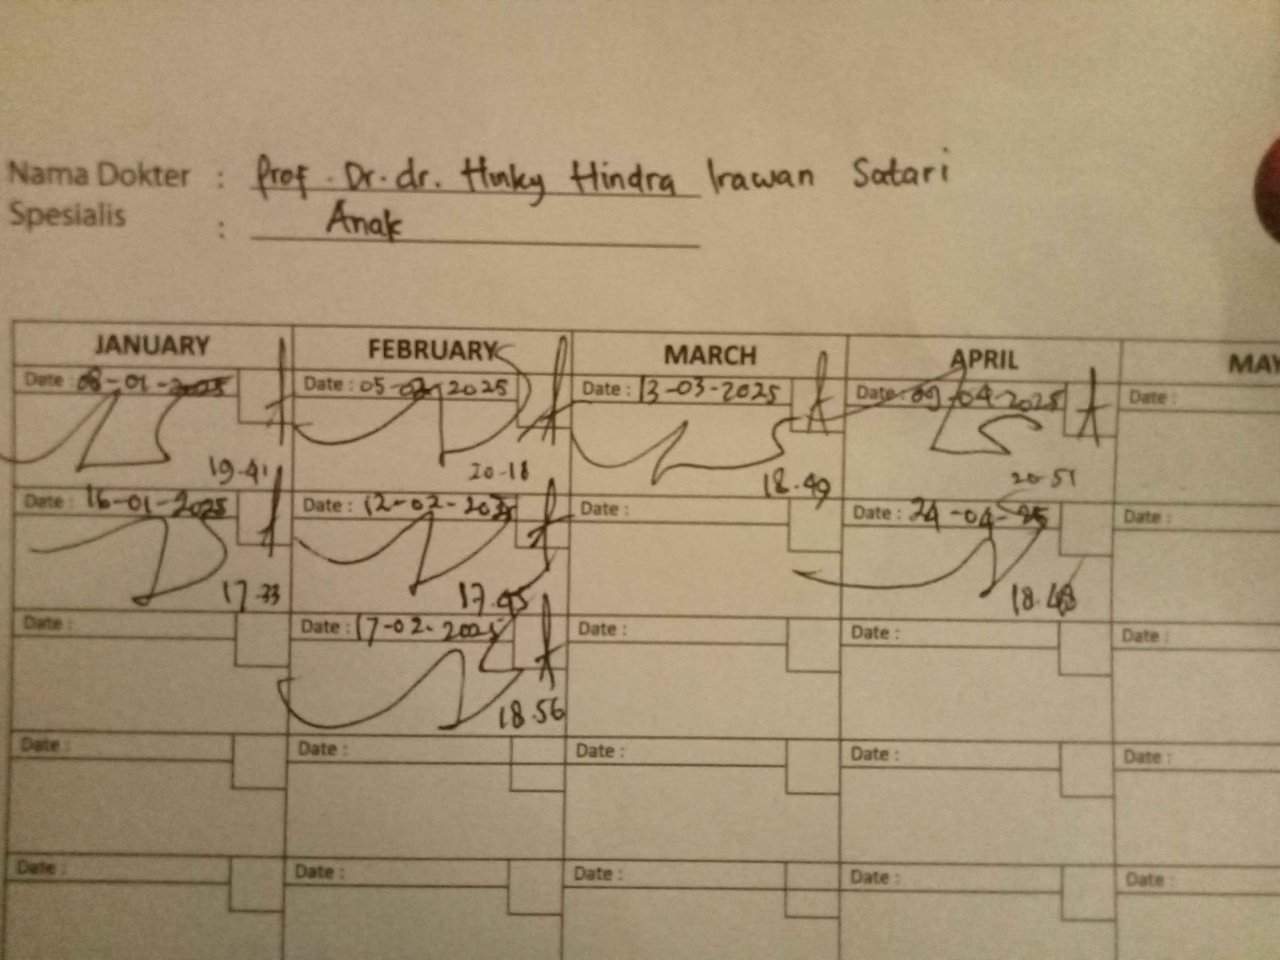 Nama Dokter : Prof. Dr. dr. Hinky Hindra Irawan Satari
Spesialis : Anak
JANUARY FEBRUARY MARCH APRIL MAY
Date : 08-01-2025 Date : 05-02-2025 Date : 13-03-2025 Date : 09-04-2025 Date :
19.41 20-18 18.49 20-51
Date : 16-01-2025 Date : 12-02-2025 Date : Date : 24-04-25 Date :
17.33 17.45 18.48
Date : Date : 17-02-2025 Date : Date : Date :
18.56
Date : Date : Date : Date : Date :
Date : Date : Date : Date : Date :